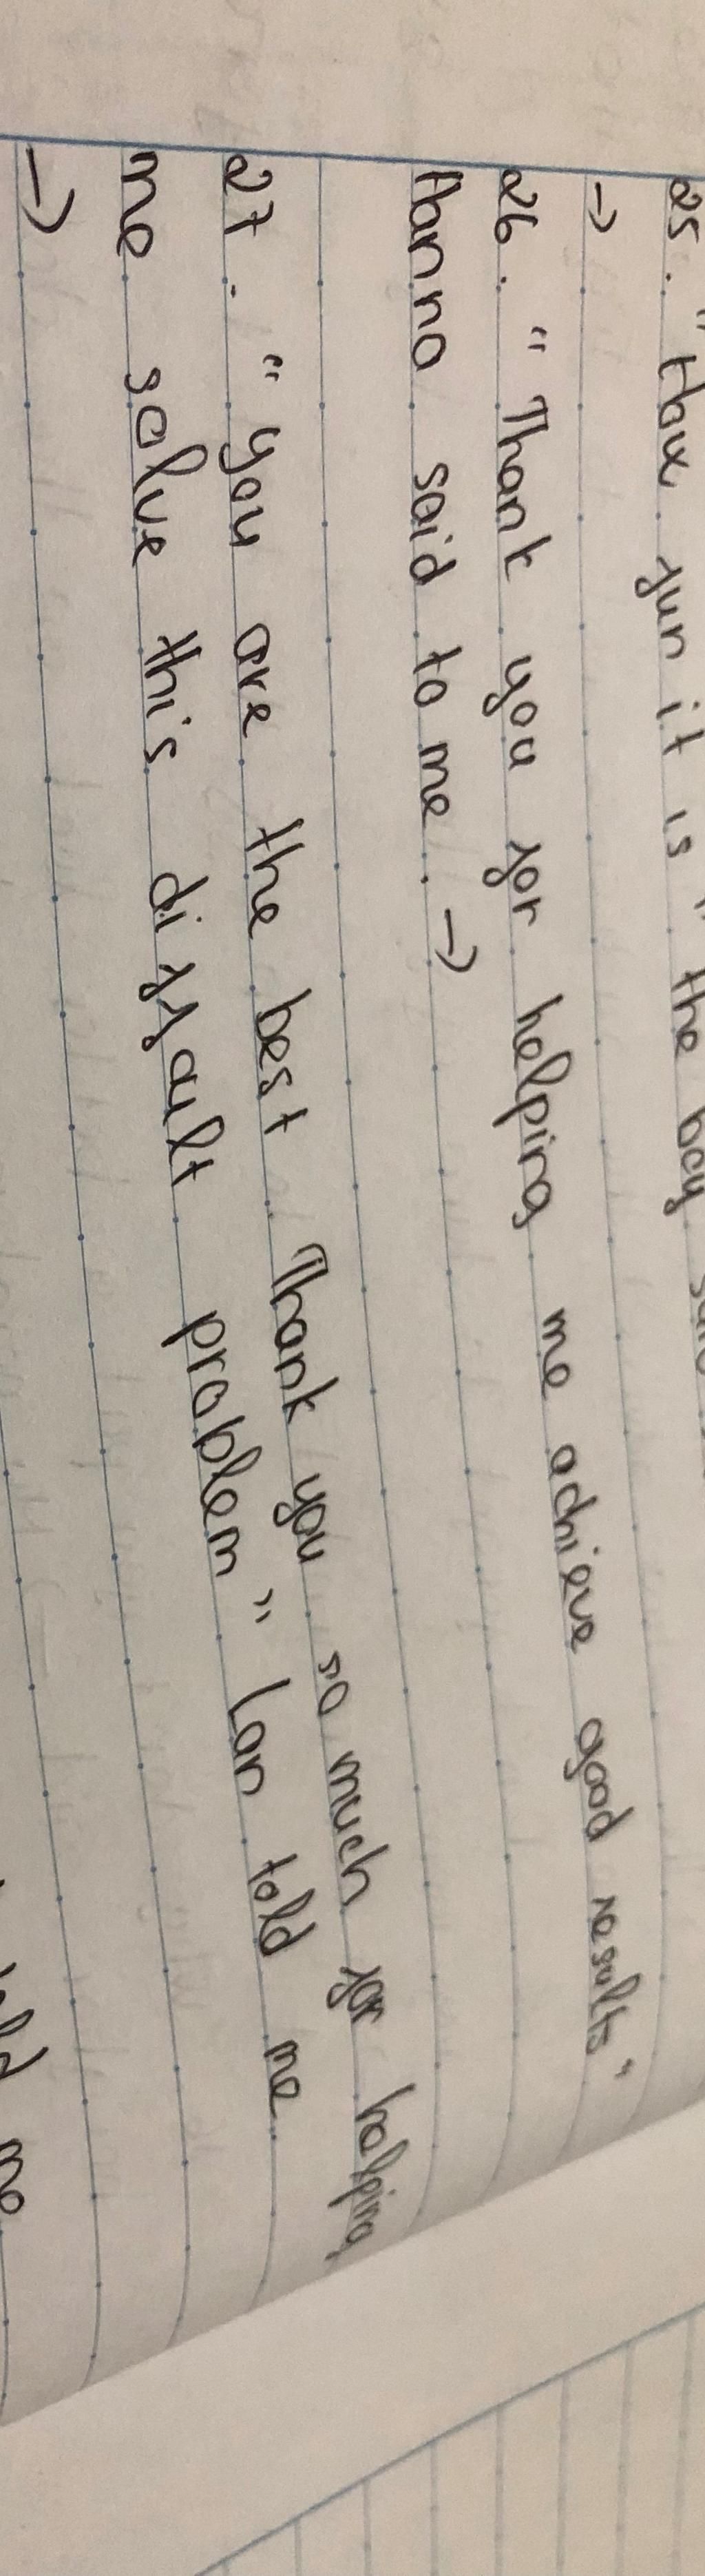 25. " How fun it is " the boy
→
26. " Thank you for helping me achieve good results "
Hanna said to me. →
27. " you are the best Thank you so much for helping
me solve this difficult problem " Lan told me
→
told me